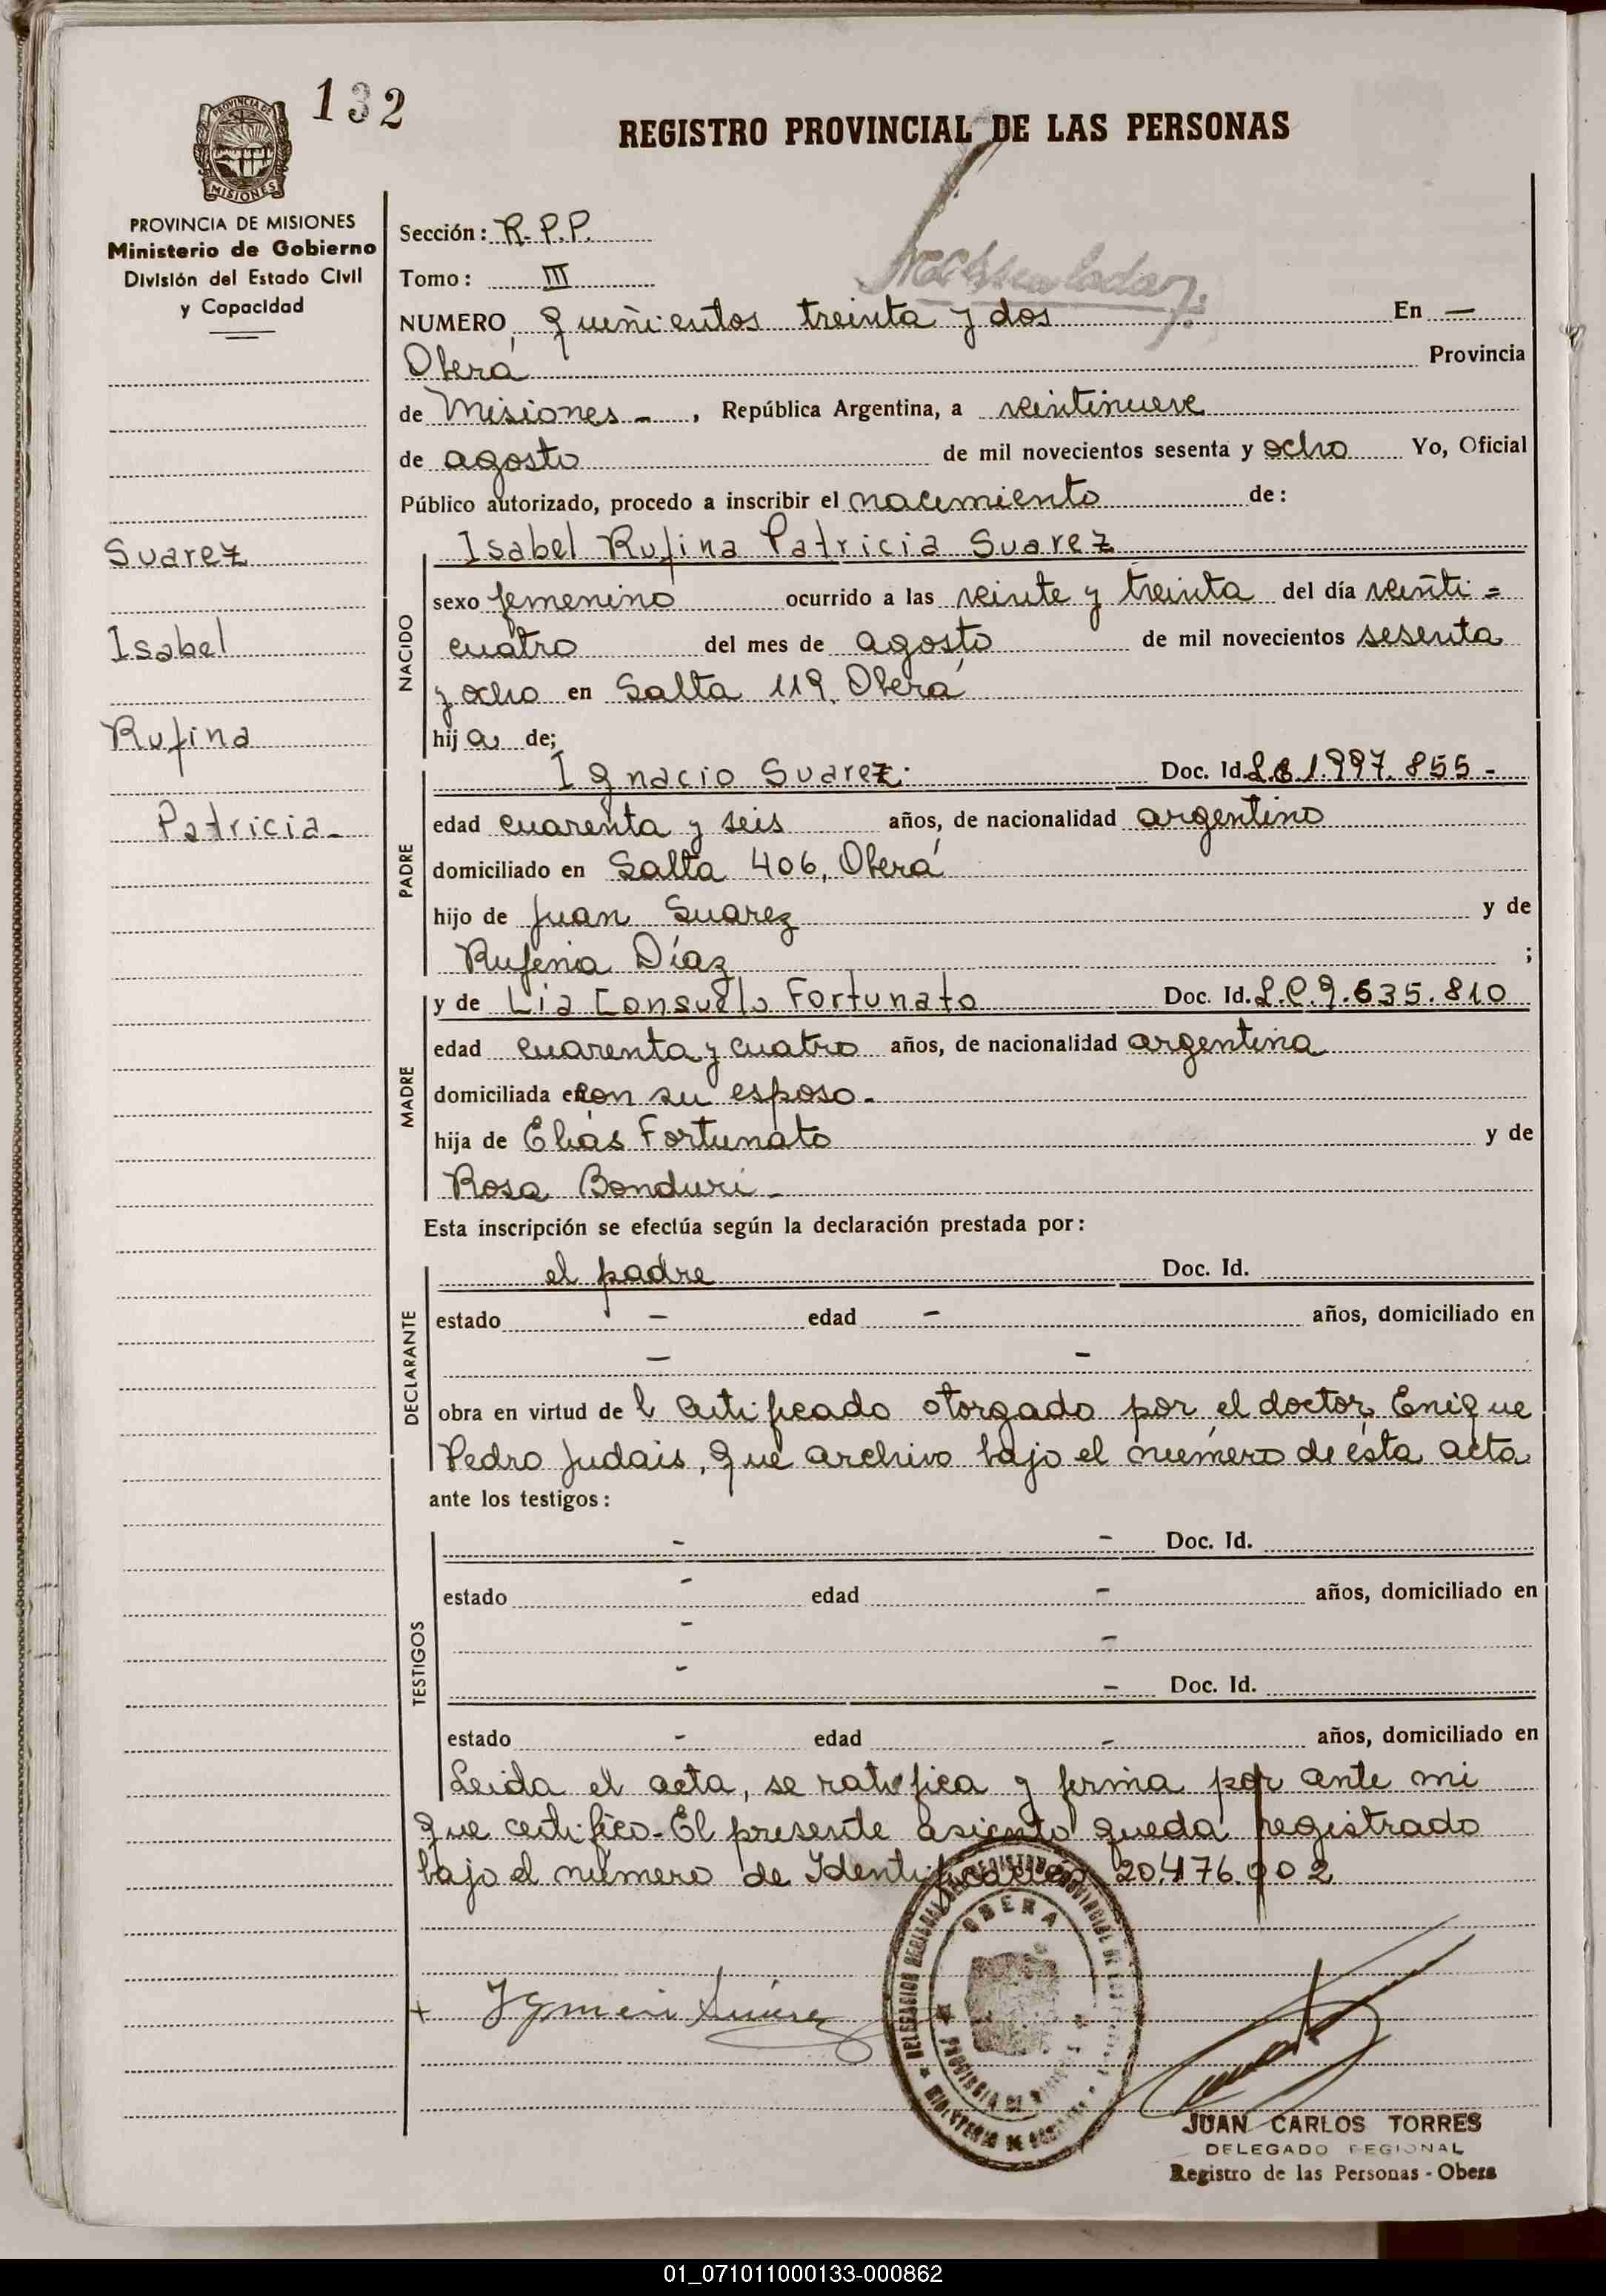 132
REGISTRO PROVINCIAL DE LAS PERSONAS
PROVINCIA DE
MISIONES
PROVINCIA DE MISIONES
Ministerio de Gobierno
División del Estado Civil
y Capacidad
Suarez
Isabel
Rufina
Patricia-
Sección: R.P.P.
Tomo: III
NUMERO quinientos treinta y dos En —
Oberá Provincia
de Misiones -, República Argentina, a veintinueve
de agosto de mil novecientos sesenta y ocho Yo, Oficial
Público autorizado, procedo a inscribir el nacimiento de:
Isabel Rufina Patricia Suarez
NACIDO
sexo femenino ocurrido a las veinte y treinta del día veinti=
cuatro del mes de agosto de mil novecientos sesenta
y ocho en Salta 119, Oberá
hija de;
PADRE
Ignacio Suarez. Doc. Id. L.E 1.997.855-
edad cuarenta y seis años, de nacionalidad argentino
domiciliado en Salta 406, Oberá
hijo de Juan Suarez y de
Rufina Díaz ;
MADRE
y de Lia Consuelo Fortunato Doc. Id. L.C.9.635.810
edad cuarenta y cuatro años, de nacionalidad argentina
domiciliada en con su esposo.
hija de Elías Fortunato y de
Rosa Banduri -
Esta inscripción se efectúa según la declaración prestada por:
DECLARANTE
el padre Doc. Id.
estado — edad — años, domiciliado en
— -
obra en virtud del certificado otorgado por el doctor Enique
Pedro Judais, que archivo bajo el número de ésta acta
ante los testigos:
TESTIGOS
- - Doc. Id.
estado - edad - años, domiciliado en
- -
- - Doc. Id.
estado - edad - años, domiciliado en
Leida el acta, se ratifica y firma por ante mi
que certifico-El presente asiento queda registrado
bajo el número de Identificación 20.476.002
OBERA
JUAN CARLOS TORRES
DELEGADO REGIONAL
Registro de las Personas - Obera
01_071011000133-000862